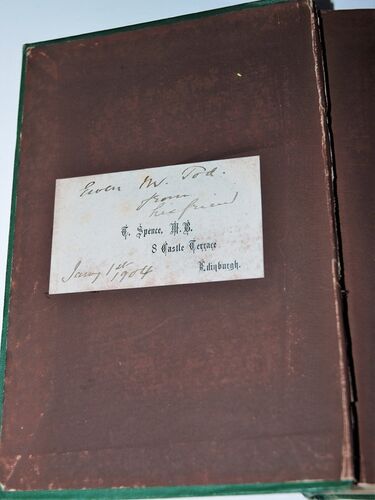 Ewen M. Tod.
from
her friend
T. Spence, M.B.
8 Castle Terrace
Edinburgh.
Jany 1st 1904